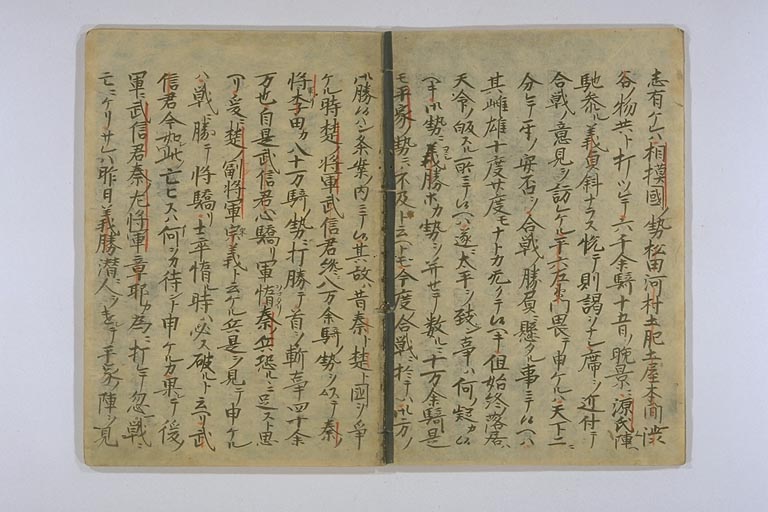 志有ケレハ相摸國ノ勢松田河村土肥土屋本間渋
谷ノ物共ト打ツレテ六千余騎十五日ノ晩景ニ源氏ノ陣ヘ
馳参ル義貞斜ナラス悦テ則謁ヲナシ席ヲ近付テ
合戦ノ意見ヲ訪ケルニ平六左衛門畏テ申ケルハ天下二ニ
分レテ互ノ安否ヲ合戦ノ勝負ニ懸タル事ニテ候ヘハ
其雌雄十度廿度モナトカ无テハ候ヘキ但始終ノ落居ハ
天命ノ帰スル所ニテ候ヘハ遂ニ太平ヲ致ン事ハ何ノ疑カ候
ヘキ御勢ニ義勝ホカ勢ヲ并セテ数ルニ十万余騎是
モ平家ノ勢ニ不及ト云トモ今度ノ合戦ニ於テハ御方ノ
御勝候ハン条案ノ内ニテ候其故ハ昔秦ト楚ト國ヲ争
ケル時楚ノ将軍武信君纔ニ八万余騎ノ勢ヲ以テ秦ノ
将李由カ八十万騎ノ勢ニ打勝テ首ヲ斬事四十余
万也自是武信君心驕リ軍惰テ秦ノ兵恐ルヽニ足スト思
ヘリ爰ニ楚ノ副将軍宋義ト云ケル兵是ヲ見テ申ケル
ハ戦ニ勝テ将驕リ士卒惰ル時ハ必ス破ルト云ヘリ武
信君今如此亡スハ何ヲカ待ント申ケルカ果テ後ノ
軍ニ武信君秦ノ左将軍章邯カ為ニ打レテ忽ニ一戦ニ
亡ニケリサレハ昨日義勝潜人ヲツカハシテ平家ノ陣ヲ見